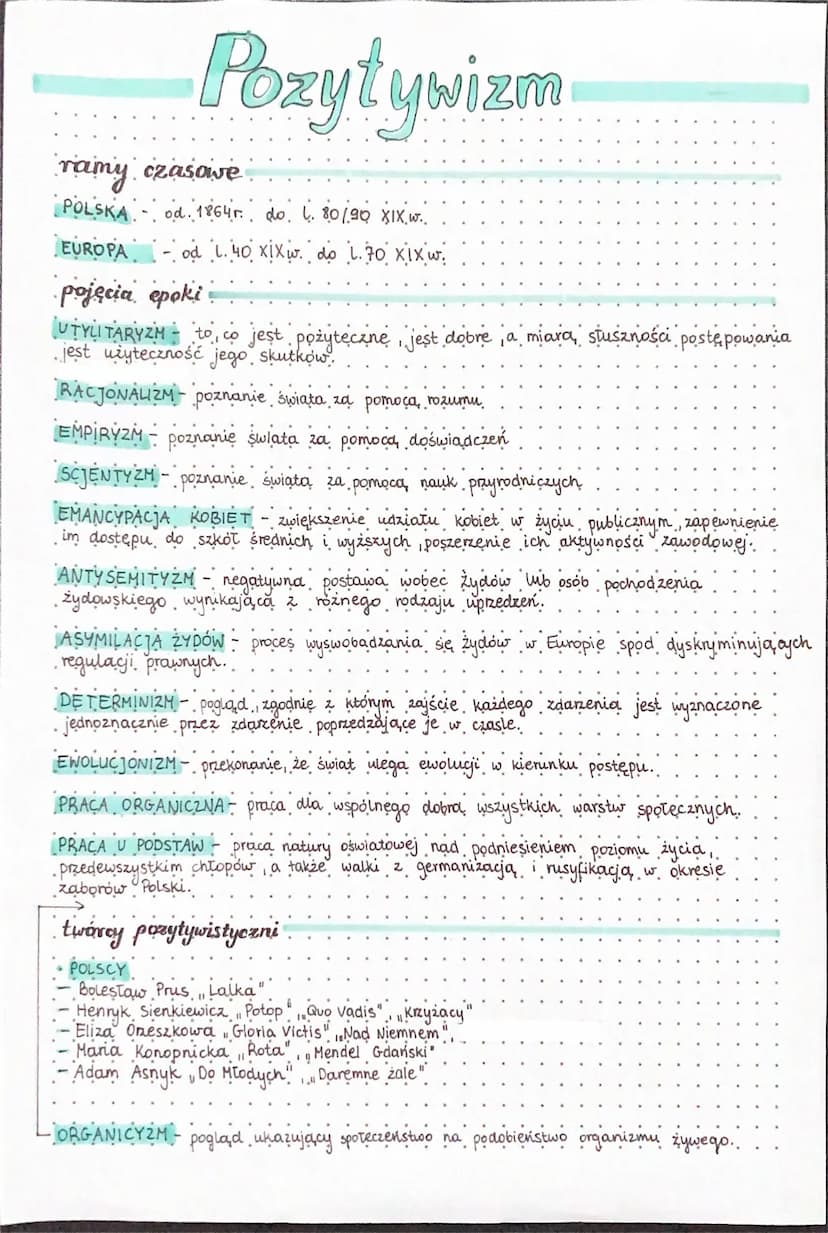 Pozytywizm
ramy czasowe
POLSKA - od 1864r. do l. 80/90 XIX w.
EUROPA - od l. 40 XIX w. do l. 70 XIX w.
pojęcia epoki
UTYLITARYZM - to, co jest pożyteczne, jest dobre, a miarą słuszności postępowania
jest użyteczność jego skutków.
RACJONALIZM - poznanie świata za pomocą rozumu
EMPIRYZM - poznanie świata za pomocą doświadczeń
SCJENTYZM - poznanie świata za pomocą nauk przyrodniczych
EMANCYPACJA KOBIET - zwiększenie udziału kobiet w życiu publicznym, zapewnienie
im dostępu do szkół średnich i wyższych, poszerzenie ich aktywności zawodowej.
ANTYSEMITYZM - negatywna postawa wobec Żydów lub osób pochodzenia
żydowskiego wynikająca z różnego rodzaju uprzedzeń.
ASYMILACJA ŻYDÓW - proces wyswobadzania się Żydów w Europie spod dyskryminujących
regulacji prawnych.
DETERMINIZM - pogląd, zgodnie z którym zajście każdego zdarzenia jest wyznaczone
jednoznacznie przez zdarzenie poprzedzające je w czasie.
EWOLUCJONIZM - przekonanie, że świat ulega ewolucji w kierunku postępu.
PRACA ORGANICZNA - praca dla wspólnego dobra wszystkich warstw społecznych.
PRACA U PODSTAW - praca natury oświatowej nad podniesieniem poziomu życia,
przedewszystkim chłopów, a także walki z germanizacją i rusyfikacją w okresie
zaborów Polski.
twórcy pozytywistyczni
• POLSCY
- Bolesław Prus „Lalka"
- Henryk Sienkiewicz „Potop", „Quo Vadis", „Krzyżacy"
- Eliza Orzeszkowa „Gloria Victis", „Nad Niemnem",
- Maria Konopnicka „Rota", „Mendel Gdański"
- Adam Asnyk „Do Młodych", „Daremne żale"
ORGANICYZM - pogląd ukazujący społeczeństwo na podobieństwo organizmu żywego.